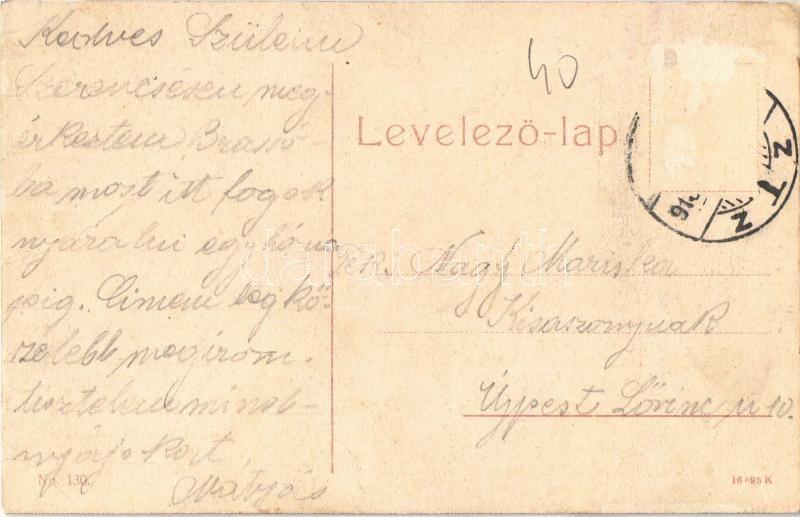 Kedves Szüleim
Szerencsésen meg-
érkeztem Brassó-
ba most itt fogok
nyaralni egy hóna
pig. Cimem legkö-
zelebb megirom.
tisztelem mind-
nyájokat
Mátyás
No. 130.
40
Levelező-lap
Tek. Nagy Mariska
Kisaszonynak
Újpest Lőrinc u 10.
16 695 K
darabanth